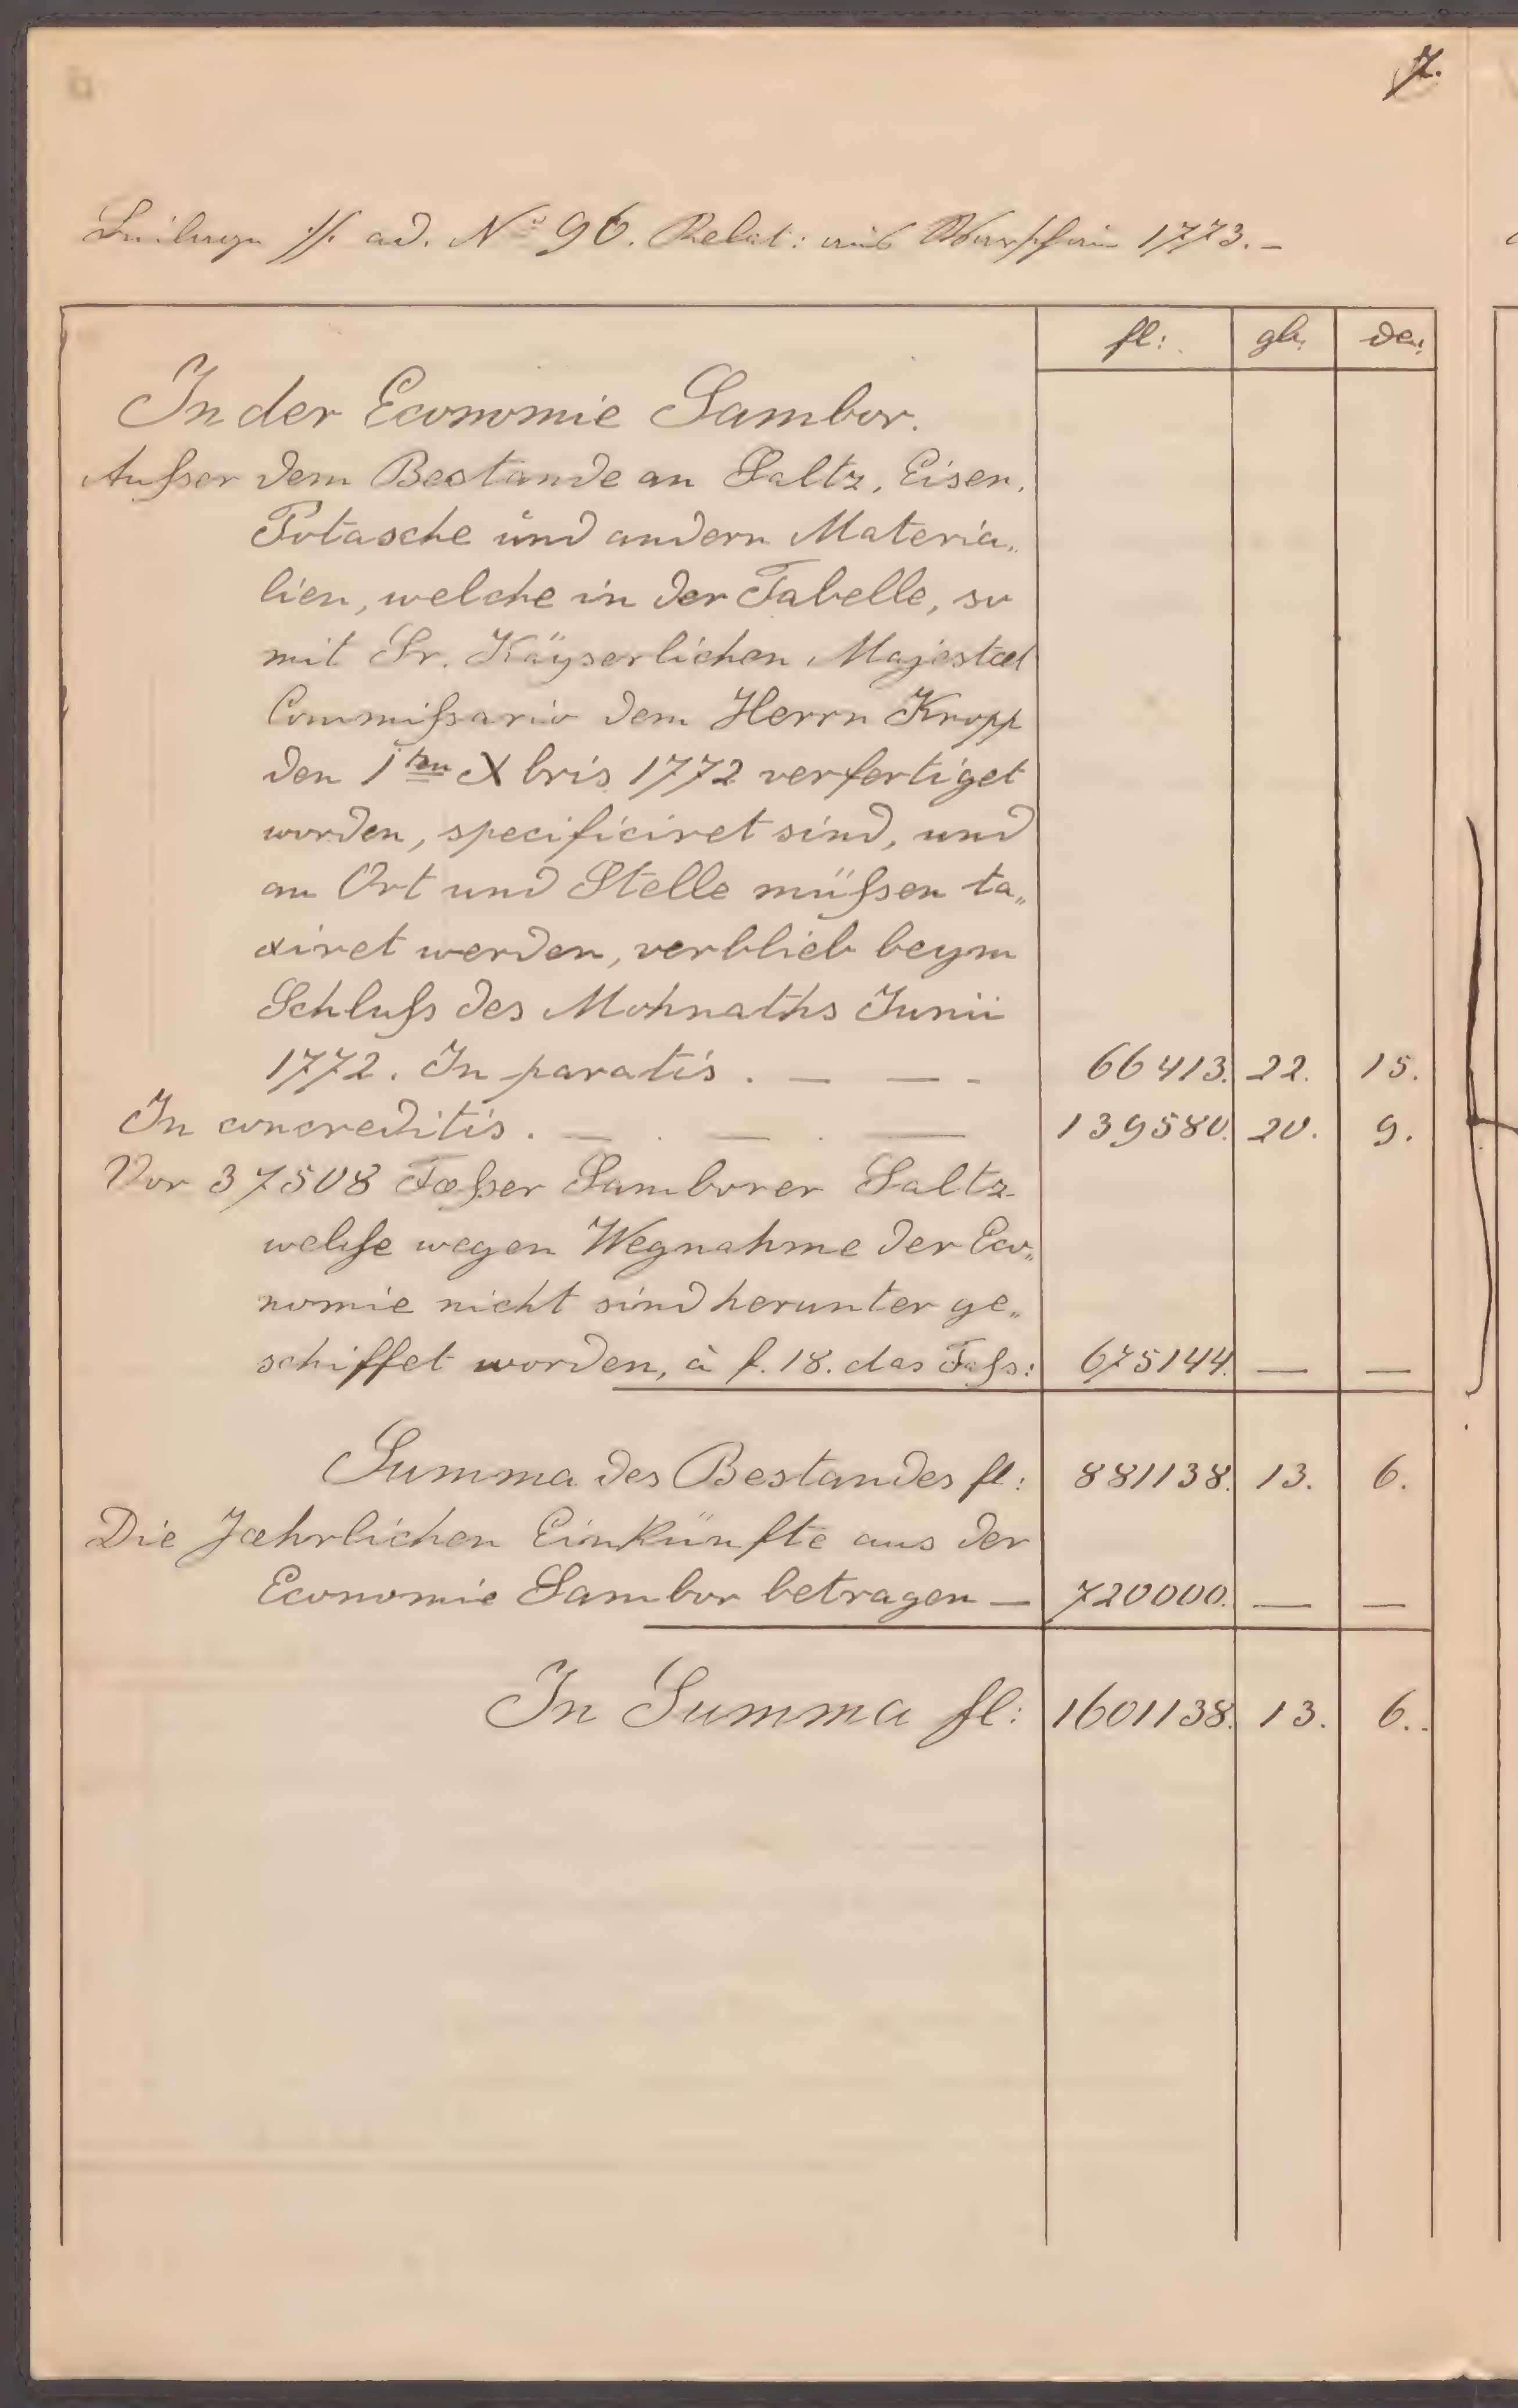 7.
Beilage //. ad. Nº 96. Relat: aus Warschau 1773.-
fl: gh. de:
In der Economie Sambor.
Ausser dem Bestande an Saltz, Eisen,
Potasche und andern Materia„
lien, welche in der Tabelle, so
mit Sr. Käyserlichen Majestæt
Commissario dem Herrn Knopp
den 1ten Xbris 1772 verfertiget
worden, specificiret sind, und
an Ort und Stelle müssen ta„
xiret werden, verblieb beym
Schluss des Mohnaths Junii
1772. In paratis. — — - 66413. 22. 15.
In concreditis. — . — . — 139580. 20. 9.
Vor 37508 Fæsser Samborer Saltz
welche wegen Wegnahme der Eco„
nomie nicht sind herunter ge„
schiffet worden, à f. 18. das Fass: 675144. — —
Summa des Bestandes fl: 881138. 13. 6.
Die Jæhrlichen Einkünfte aus der
Economie Sambor betragen — 720000. — —
In Summa fl: 1601138. 13. 6..